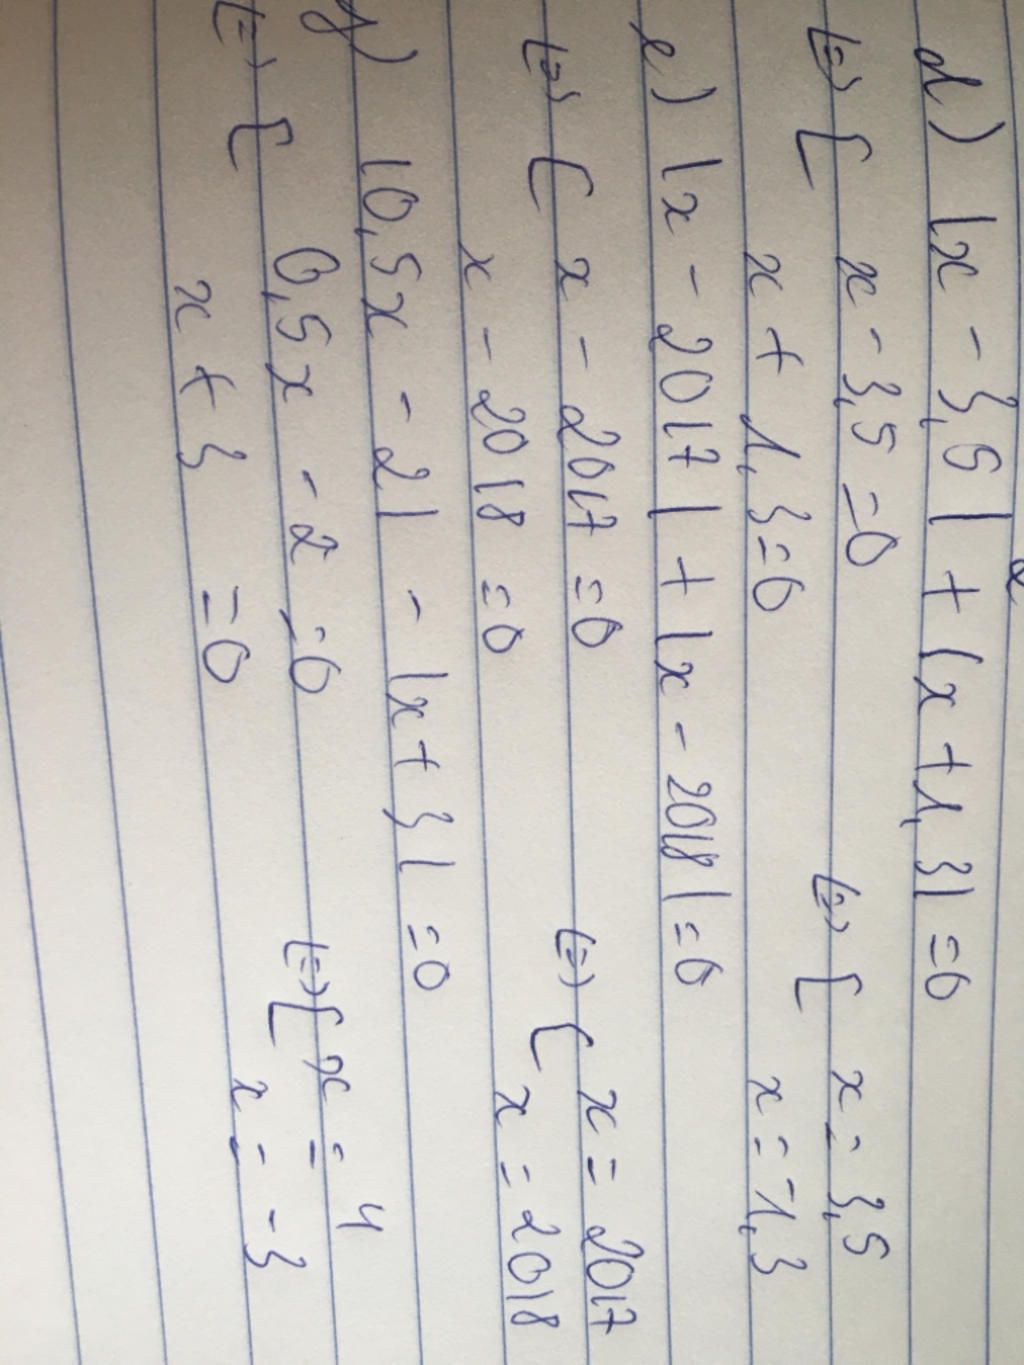 d) |x - 3,5| + |x + 1,3| = 0
(=) [ x - 3,5 = 0 (=) [ x = 3,5
x + 1,3 = 0 x = -1,3
e) |x - 2017| + |x - 2018| = 0
(=) [ x - 2017 = 0 (=) [ x = 2017
x - 2018 = 0 x = 2018
g) |0,5x - 2| - |x + 3| = 0
(=) [ 0,5x - 2 = 0 (=) [ x = 4
x + 3 = 0 x = -3